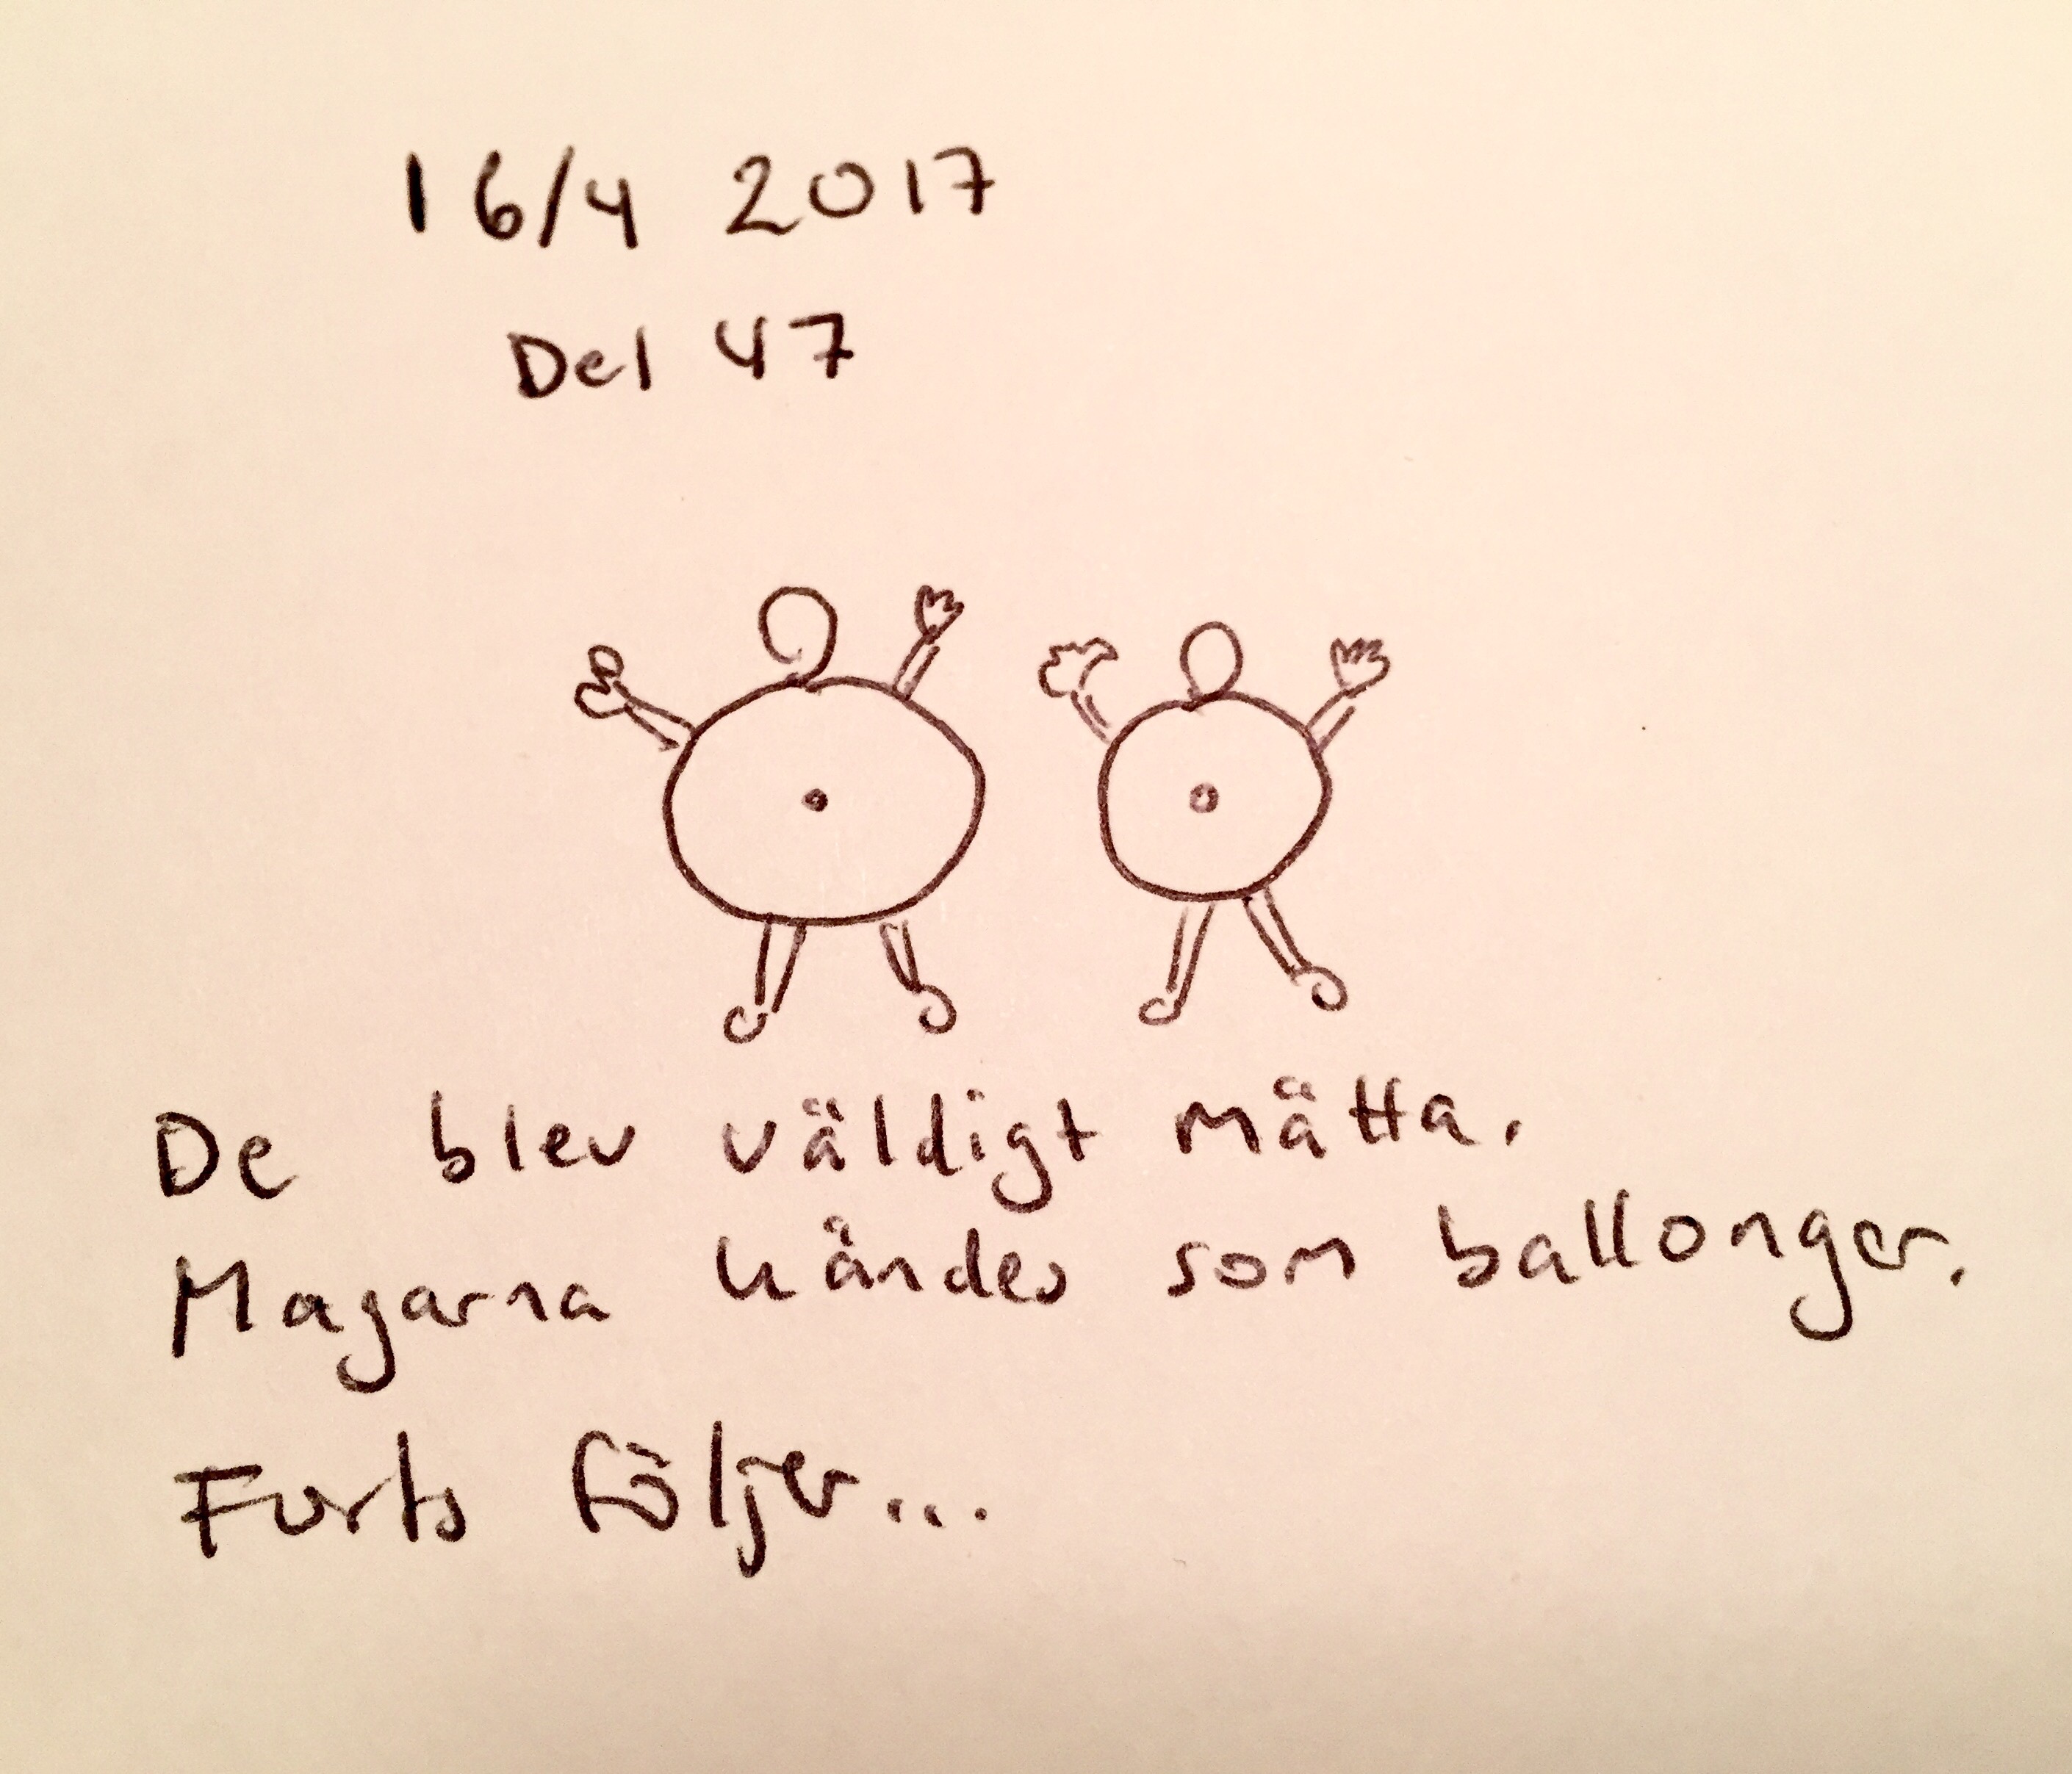 16/4 2017
Del 47
De blev väldigt mätta.
Magarna kändes som ballonger.
Forts följer...